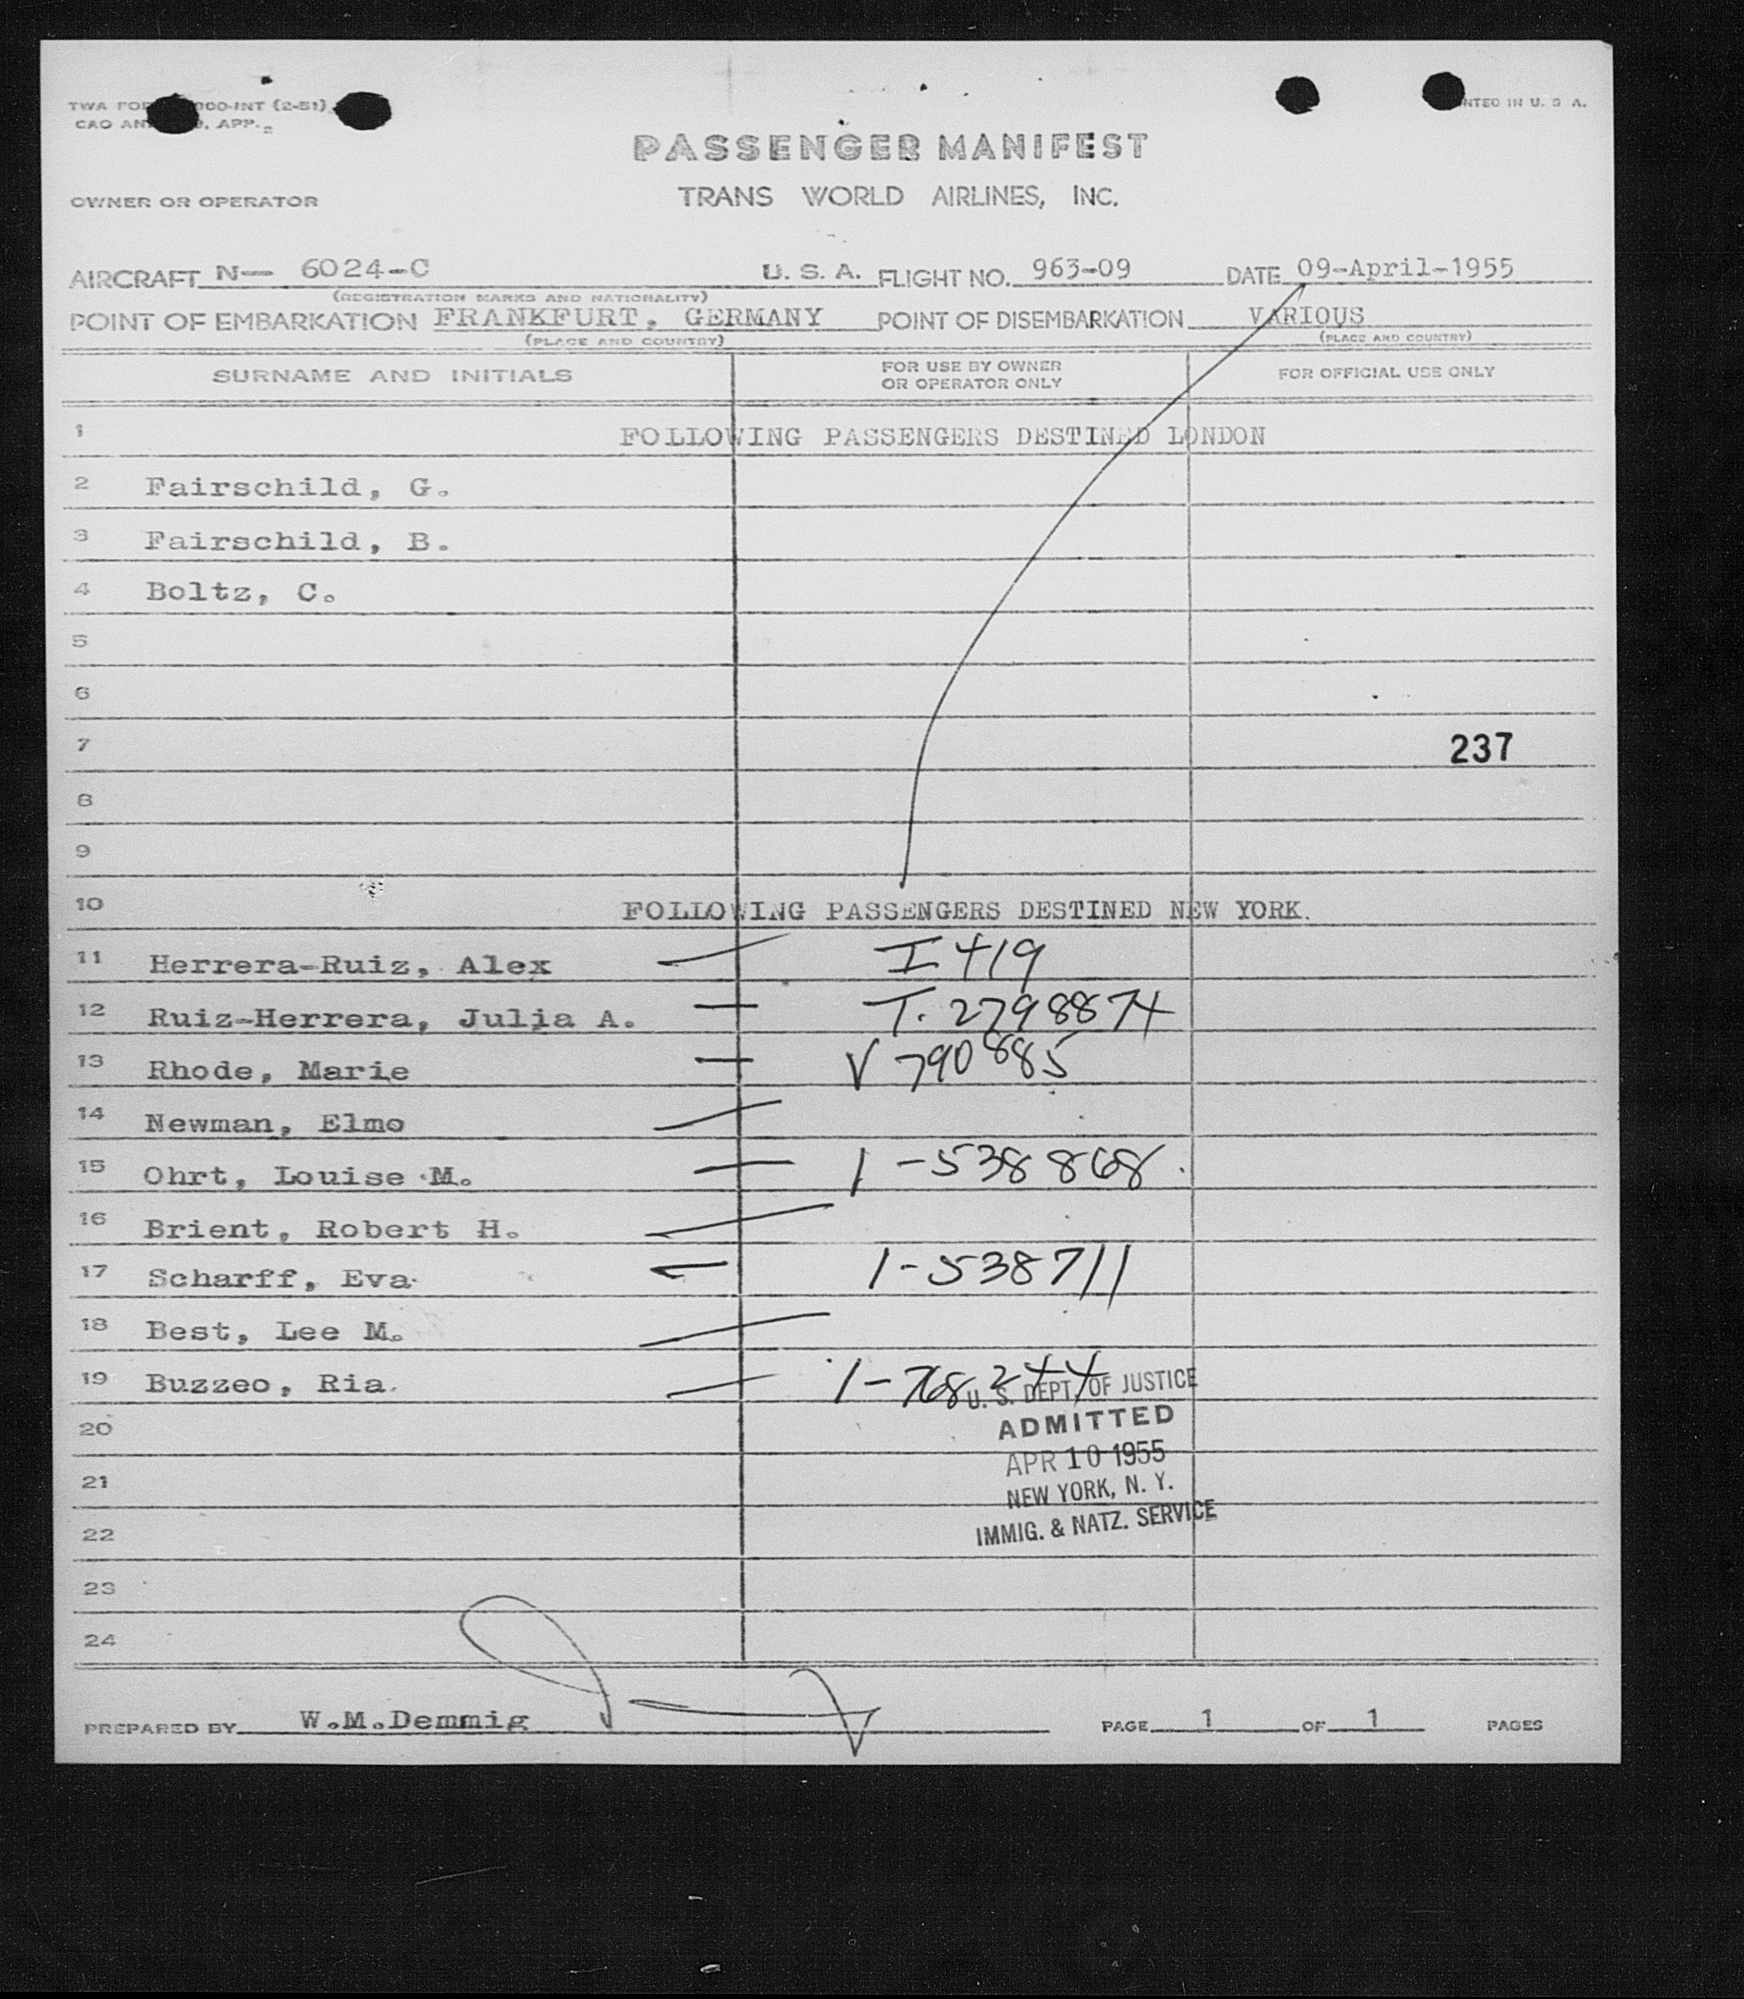 TWA FOR 000-INT (2-51)
NTED IN U. S. A.
CAO AN 9, APP.
PASSENGER MANIFEST
OWNER OR OPERATOR
TRANS WORLD AIRLINES, INC.
AIRCRAFT N- 6024-C U. S. A. FLIGHT NO. 963-09 DATE 09-April-1955
(REGISTRATION MARKS AND NATIONALITY)
POINT OF EMBARKATION FRANKFURT, GERMANY POINT OF DISEMBARKATION VARIOUS
(PLACE AND COUNTRY) (PLACE AND COUNTRY)
SURNAME AND INITIALS FOR USE BY OWNER OR OPERATOR ONLY FOR OFFICIAL USE ONLY
1 FOLLOWING PASSENGERS DESTINED LONDON
2 Fairschild, G.
3 Fairschild, B.
4 Boltz, C.
5
6
7 237
8
9
10 FOLLOWING PASSENGERS DESTINED NEW YORK.
11 Herrera-Ruiz, Alex I 419
12 Ruiz-Herrera, Julia A. T. 2798874
13 Rhode, Marie V 790885
14 Newman, Elmo
15 Ohrt, Louise M. 1-538868.
16 Brient, Robert H.
17 Scharff, Eva 1-538711
18 Best, Lee M.
19 Buzzeo, Ria 1-768244
U. S. DEPT. OF JUSTICE
20 ADMITTED
APR 10 1955
21 NEW YORK, N. Y.
22 IMMIG. & NATZ. SERVICE
23
24
PREPARED BY W.M.Demmig PAGE 1 OF 1 PAGES